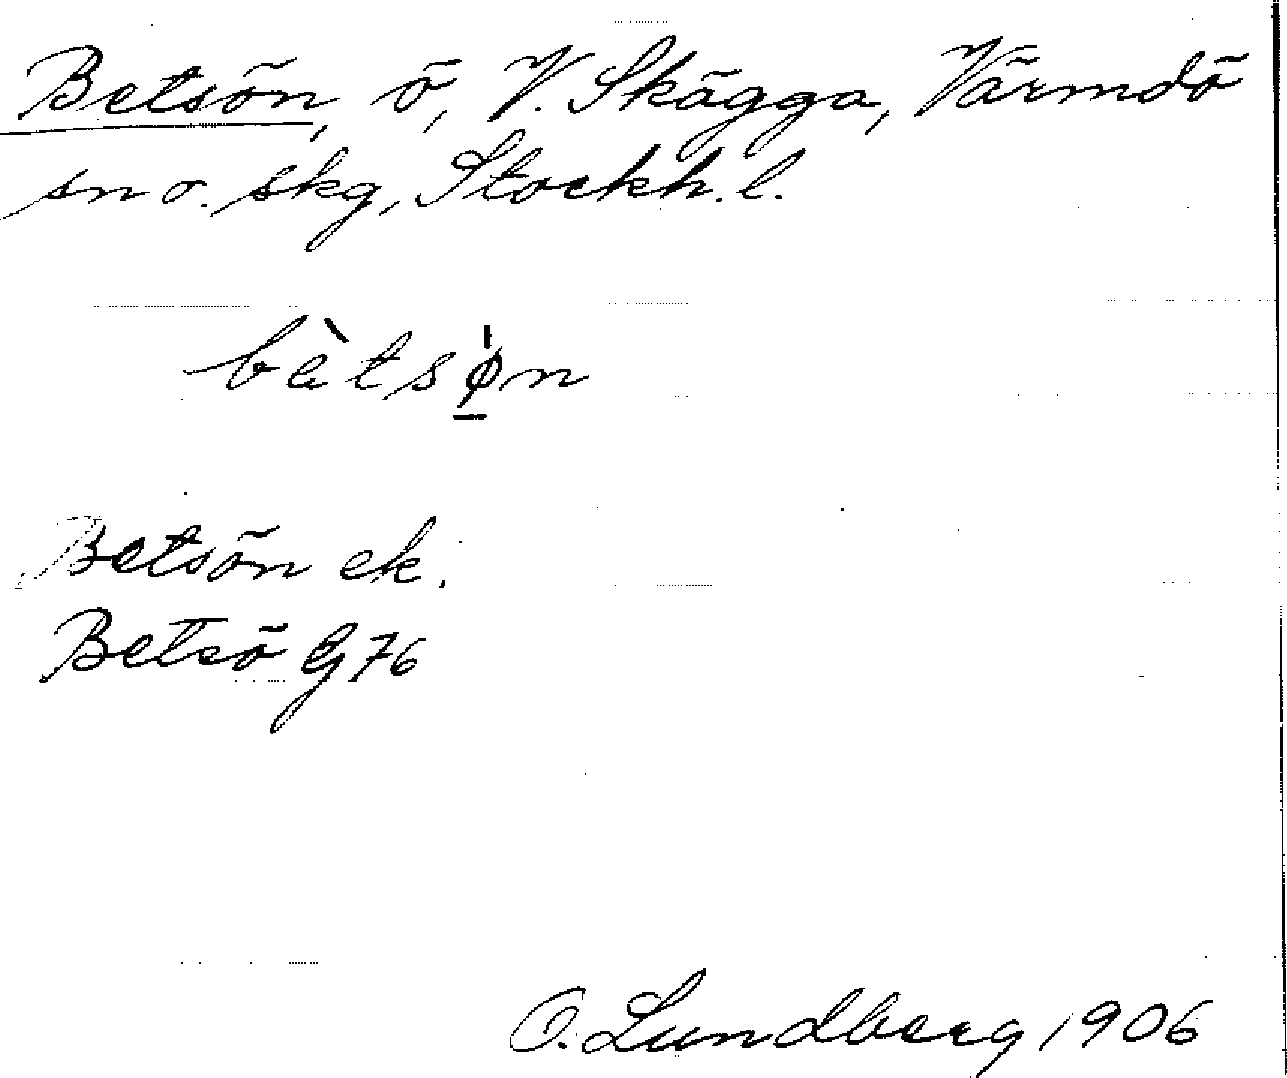 Betsön, ö, V. Skägga, Värmdö
sn o. skg, Stockh. l.
bètsø̱̍n
Betsön ek.
Betsö G 76
O. Lundberg 1906